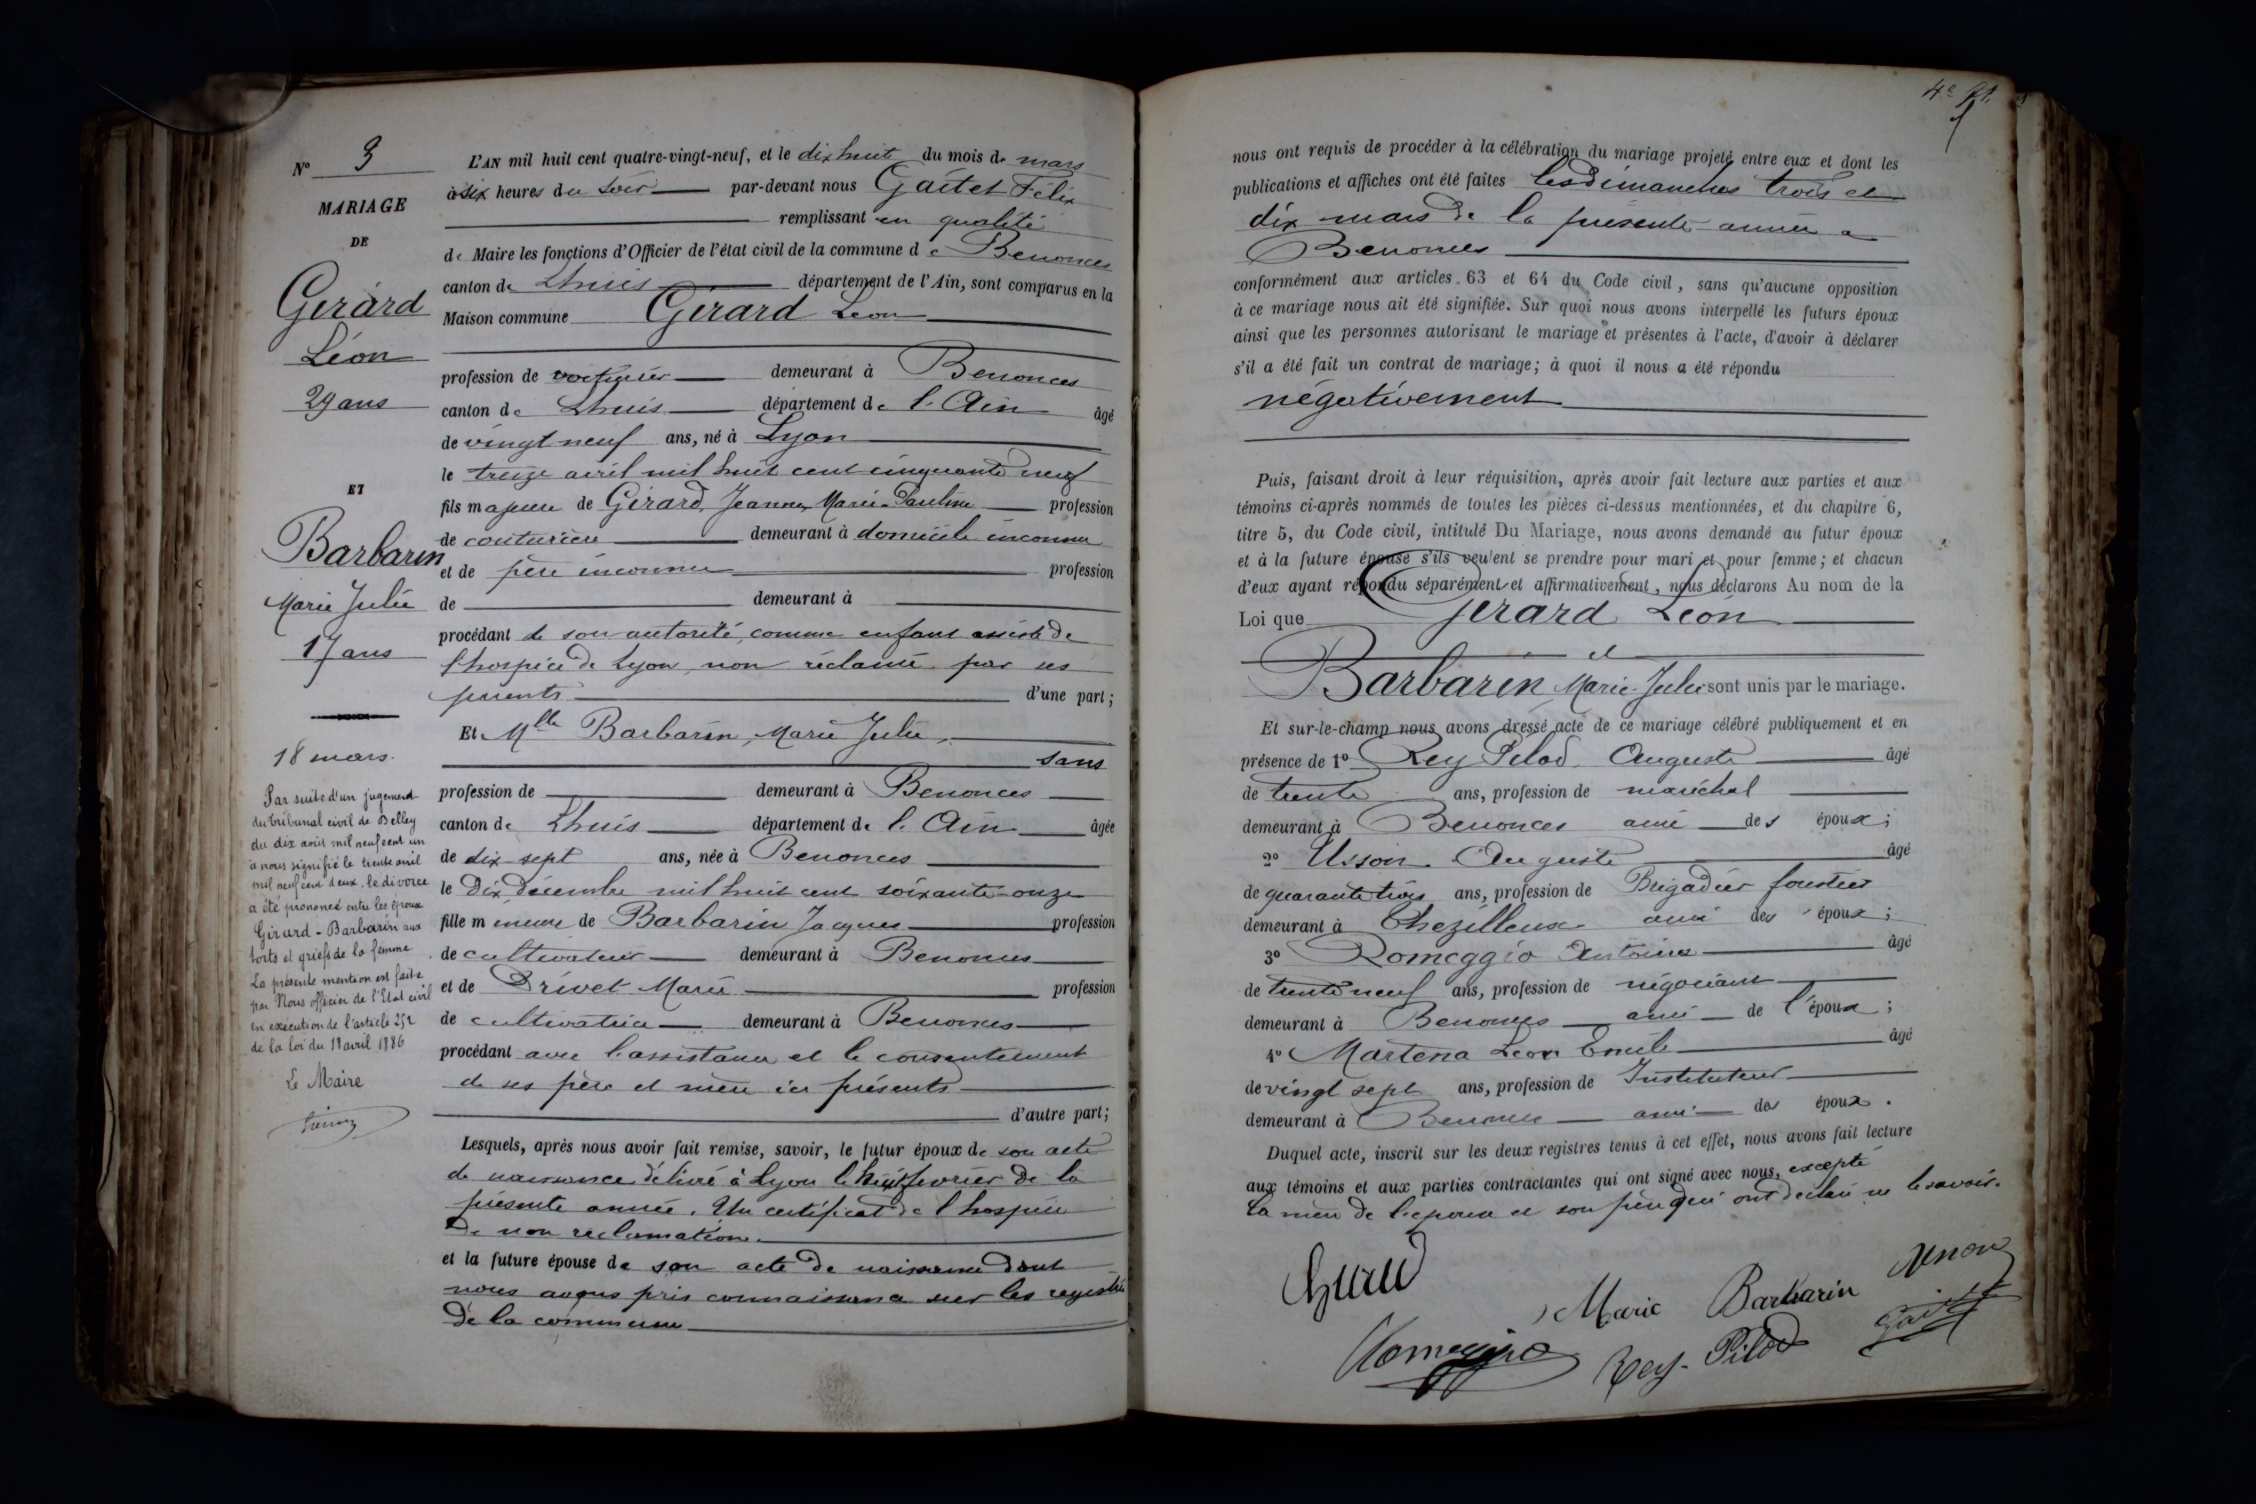 N° 3
MARIAGE
DE
Gérard
Léon
29 ans
ET
Barbarin
Marie Julie
17 ans
18 mars.
Par suite d'un jugement
du tribunal civil de Belley
du dix août mil neuf cent un
à nous signifié le trente avril
mil neuf cent deux, le divorce
a été prononcé entre les époux
Girard - Barbarin aux
torts et griefs de la femme
La présente mention est faite
par Nous officier de l'Etat civil
en exécution de l'article 252
de la loi du 18 avril 1886
Le Maire
L'AN mil huit cent quatre-vingt-neuf, et le dix huit du mois de mars
à six heures du soir par-devant nous Gaitet Félix
remplissant en qualité
de Maire les fonctions d'Officier de l'état civil de la commune de Benonces
canton de Lhuis département de l'Ain, sont comparus en la
Maison commune Gérard Léon
profession de demeurant à Benonces
canton de Lhuis département de l'Ain âgé
de vingt neuf ans, né à Lyon
le treize avril mil huit cent cinquante neuf
fils majeur de Gérard, Jeanne Marie Pauline profession
de couturière demeurant à domicile inconnu
et de père inconnu profession
de demeurant à
procédant de son autorité, comme enfant assisté de
l'hospice de Lyon, non réclamé par ses
parents d'une part;
Et Mlle Barbarin, Marie Julie,
sans
profession de demeurant à Benonces
canton de Lhuis département de l'Ain âgée
de dix sept ans, née à Benonces
le dix décembre mil huit cent soixante-onze
fille mineure de Barbarin Jacques profession
de cultivateur demeurant à Benonces
et de Drivet Marie profession
de cultivatrice demeurant à Benonces
procédant avec l'assistance et le consentement
de ses père et mère ici présents
d'autre part;
Lesquels, après nous avoir fait remise, savoir, le futur époux de son acte
de naissance délivré à Lyon le huit février de la
présente année. Un certificat de l'hospice
de non réclamation.
et la future épouse de son acte de naissance dont
nous avons pris connaissance sur les registres
de la commune
4e
nous ont requis de procéder à la célébration du mariage projeté entre eux et dont les
publications et affiches ont été faites les dimanches trois et
dix mars de la présente année à
Benonces
conformément aux articles 63 et 64 du Code civil, sans qu'aucune opposition
à ce mariage nous ait été signifiée. Sur quoi nous avons interpellé les futurs époux
ainsi que les personnes autorisant le mariage et présentes à l'acte, d'avoir à déclarer
s'il a été fait un contrat de mariage; à quoi il nous a été répondu
négativement
Puis, faisant droit à leur réquisition, après avoir fait lecture aux parties et aux
témoins ci-après nommés de toutes les pièces ci-dessus mentionnées, et du chapitre 6,
titre 5, du Code civil, intitulé Du Mariage, nous avons demandé au futur époux
et à la future épouse s'ils veulent se prendre pour mari et pour femme; et chacun
d'eux ayant répondu séparément et affirmativement, nous déclarons Au nom de la
Loi que Gérard Léon
et
Barbarin Marie-Julie sont unis par le mariage.
Et sur-le-champ nous avons dressé acte de ce mariage célébré publiquement et en
présence de 1° Rey Pilod Auguste âgé
de trente ans, profession de maréchal
demeurant à Benonces ami des époux;
2° Usson Auguste âgé
de quarante trois ans, profession de Brigadier forestier
demeurant à ami des époux;
3° Romeggio Antoine âgé
de trente neuf ans, profession de négociant
demeurant à Benonces ami de l'époux;
4° Martena Léon Emile âgé
de vingt sept ans, profession de Instituteur
demeurant à Benonces ami des époux.
Duquel acte, inscrit sur les deux registres tenus à cet effet, nous avons fait lecture
aux témoins et aux parties contractantes qui ont signé avec nous, excepté
la mère de l'épouse et son père qui ont déclaré ne le savoir.
Marie Barbarin Usson
Romeggio Rey-Pilod Gaitet